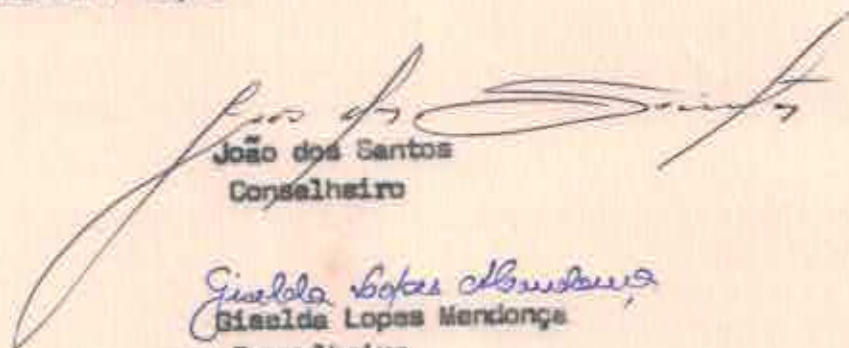 João dos Santos
João dos Santos
Conselheiro
Giselda Lopes Mendonça
Giselda Lopes Mendonça